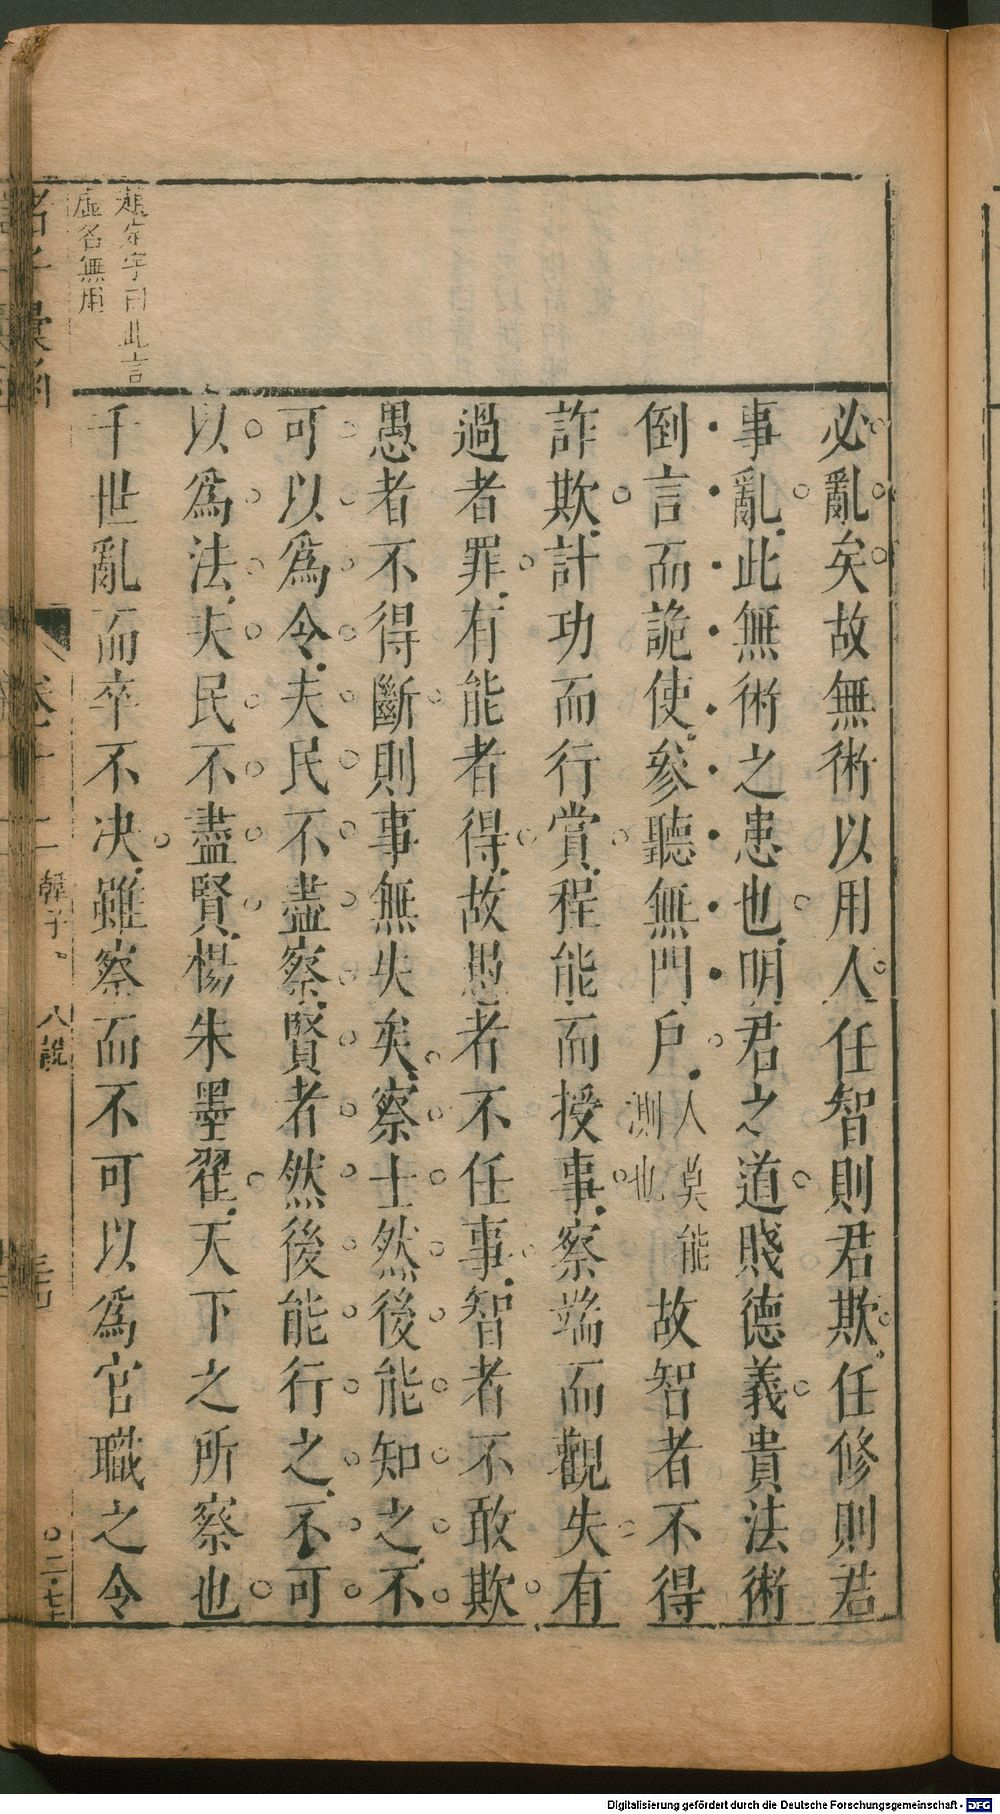 必亂矣故無術以用人任智則君欺任修則君
事亂此無術之患也明君之道賤德義貴法術
倒言而詭使參聽無門戶人莫能測也故智者不得
詐欺計功而行賞程能而授事察端而觀失有
過者罪有能者得故愚者不任事智者不敢欺
愚者不得斷則事無失矣察士然後能知之不
可以為令夫民不盡察賢者然後能行之不可
以為法夫民不盡賢楊朱墨翟天下之所察也
千世亂而卒不決雖察而不可以為官職之令
趙定宇曰此言
虛名無用
諸子彙函
卷十二
韓子
八說
二七
Digitalisierung gefördert durch die Deutsche Forschungsgemeinschaft - DFG